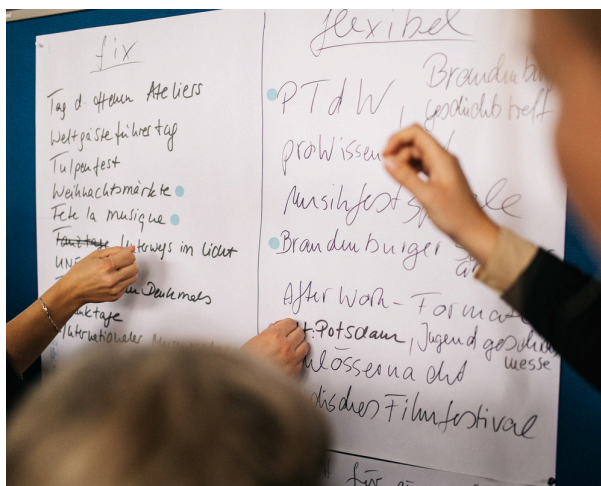 fix
Tag d. offenen Ateliers
Weltgästeführertag
Tulpenfest
Weihnachtsmärkte
Fete la musique
Tanztage Unterwegs im Licht
UNE
Denkmals
ktage
Internationaler
flexibel
PTdW,
Brandenbu
geschichtstreff
proWissen
Musikfestspiele
Brandenburger
After Work - Format
t. Potsdam, Jugend geschich
messe
lössernacht
disches Filmfestival
für